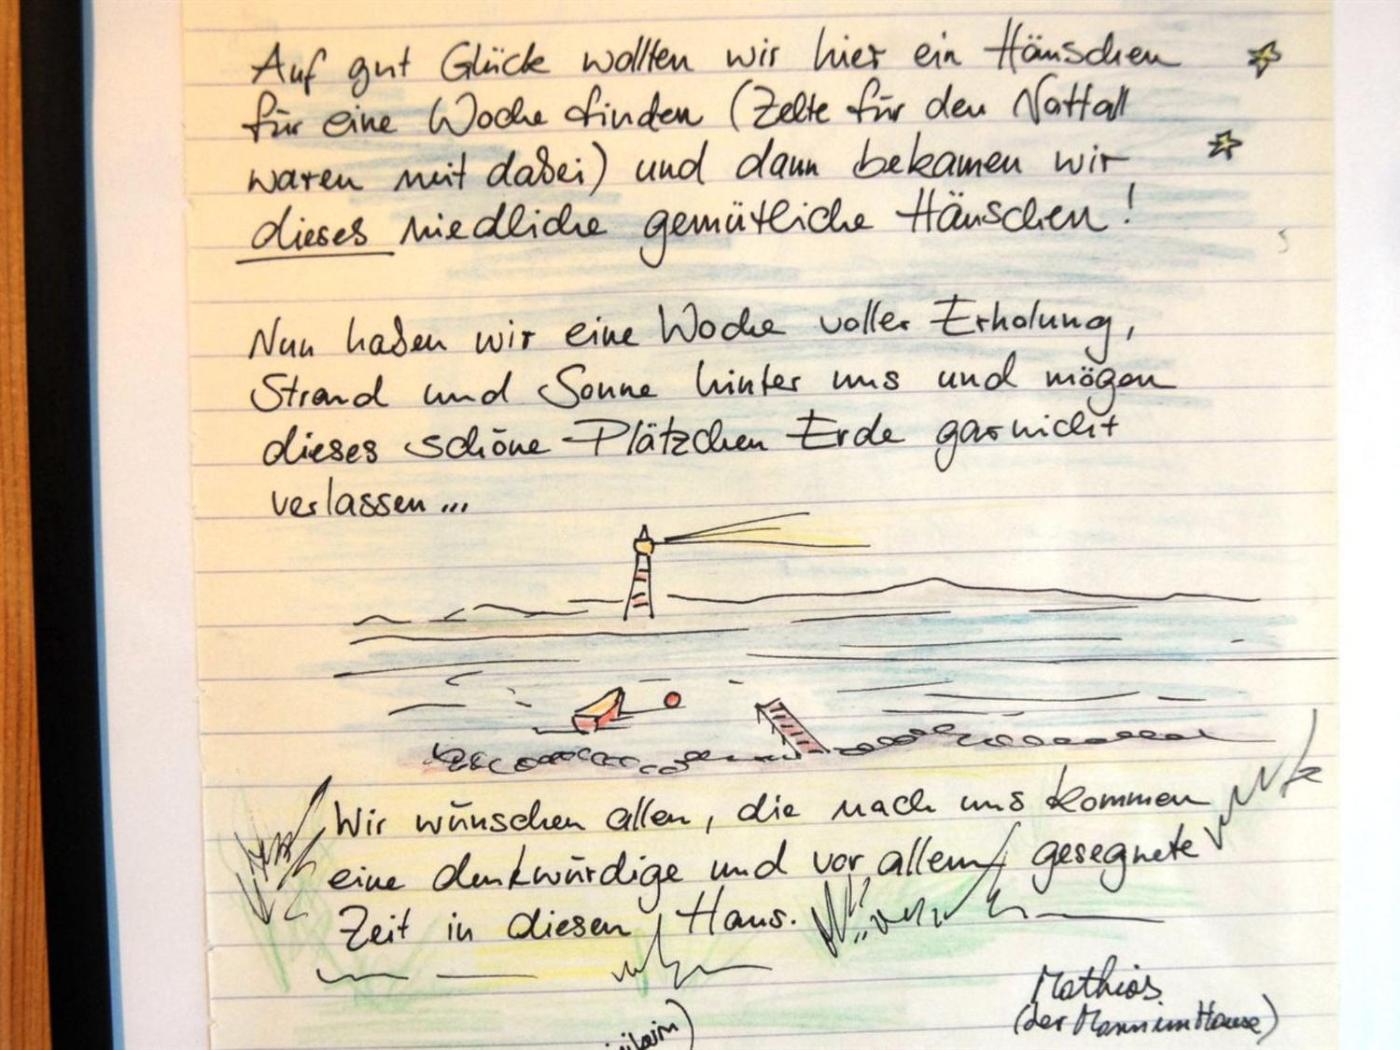 Auf gut Glück wollten wir hier ein Häuschen
für eine Woche finden (Zelte für den Notfall
waren mit dabei) und dann bekamen wir
dieses niedliche gemütliche Häuschen!
Nun haben wir eine Woche voller Erholung,
Strand und Sonne hinter uns und mögen
dieses schöne Plätzchen Erde garnicht
verlassen...
Wir wünschen allen, die nach uns kommen
eine denkwürdige und vor allem gesegnete
Zeit in diesen Haus.
Mathias
(der Mann im Hause)